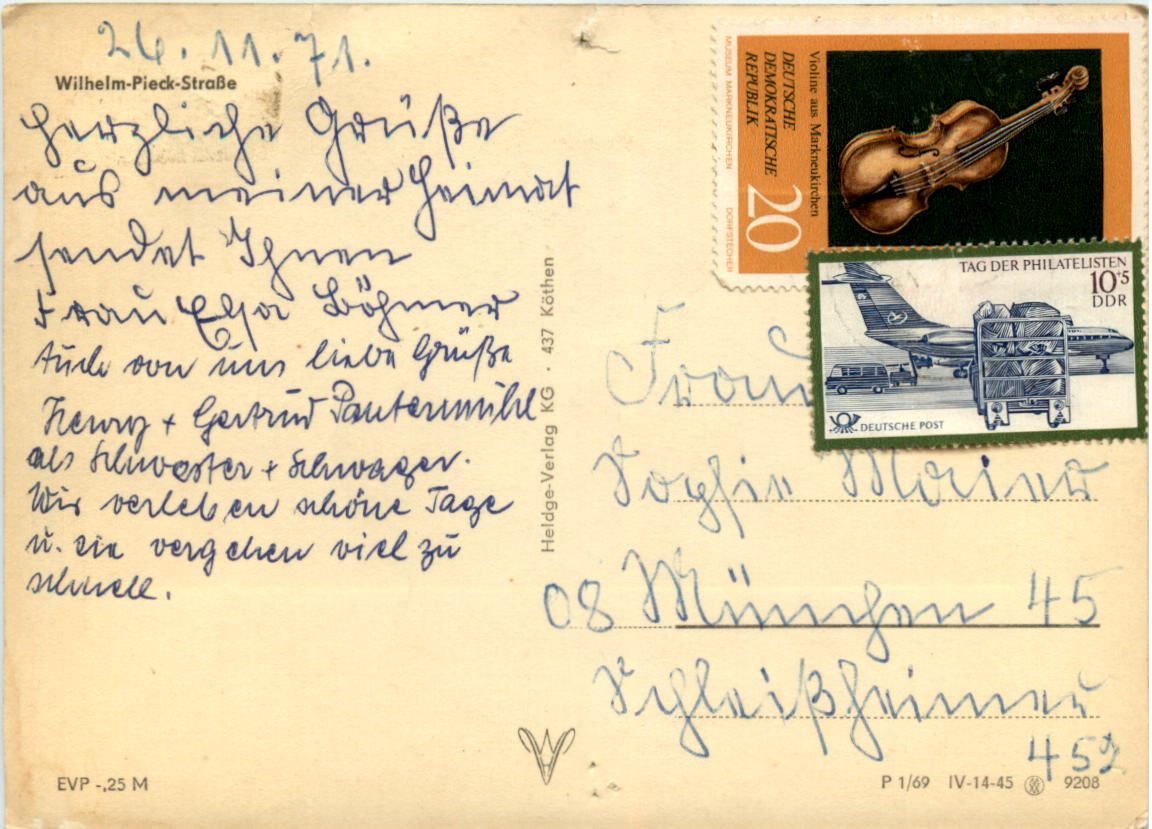 26.11.71.
Wilhelm-Pieck-Straße
Herzliche Grüße
aus meiner Heimat
sendet Ihnen
Frau Elsa Böhmer
Auch von uns liebe Grüße
+ Gertrud
als Schwester + Schwager.
Wir verleben schöne Tage
u. sie vergehen viel zu
schnell.
EVP -,25 M
Heldge-Verlag KG · 437 Köthen
Violine aus Markneukirchen
DEUTSCHE
DEMOKRATISCHE
REPUBLIK
20
MUSEUM MARKNEUKIRCHEN DORFSTECHER
TAG DER PHILATELISTEN
10+5
DDR
DEUTSCHE POST
Frau
Sophie Maier
08 München 45
Schleißheimer
452
P 1/69 IV-14-45 9208